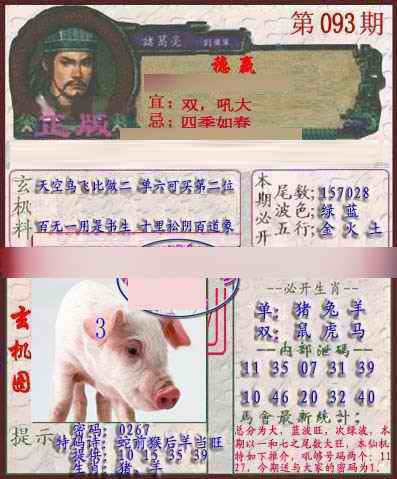 第093期
諸葛亮
稳赢
宜：双，吼大
忌：四季如春
正版
玄机料
天空鸟飞比做二 单六可买第二位
百无一用是书生 十里松阴百道象
本期必开
尾数:157028
波色:绿 蓝
五行:金 火 土
玄机图
3
--必开生肖--
单: 猪 兔 羊
双: 鼠 虎 马
--内部泄码--
11 35 07 31 39
10 46 20 32 40
馬會最新統計:
总分为大，蓝波旺，次绿波，本
期以一和七之尾数大旺，本仙机
特如下推介，吼够号码两个：11
27，今期送与大家的密码为1。
提示
密码: 0267
特码诗: 蛇前猴后羊当旺
提供: 10 15 35 39
生肖: 猪、羊